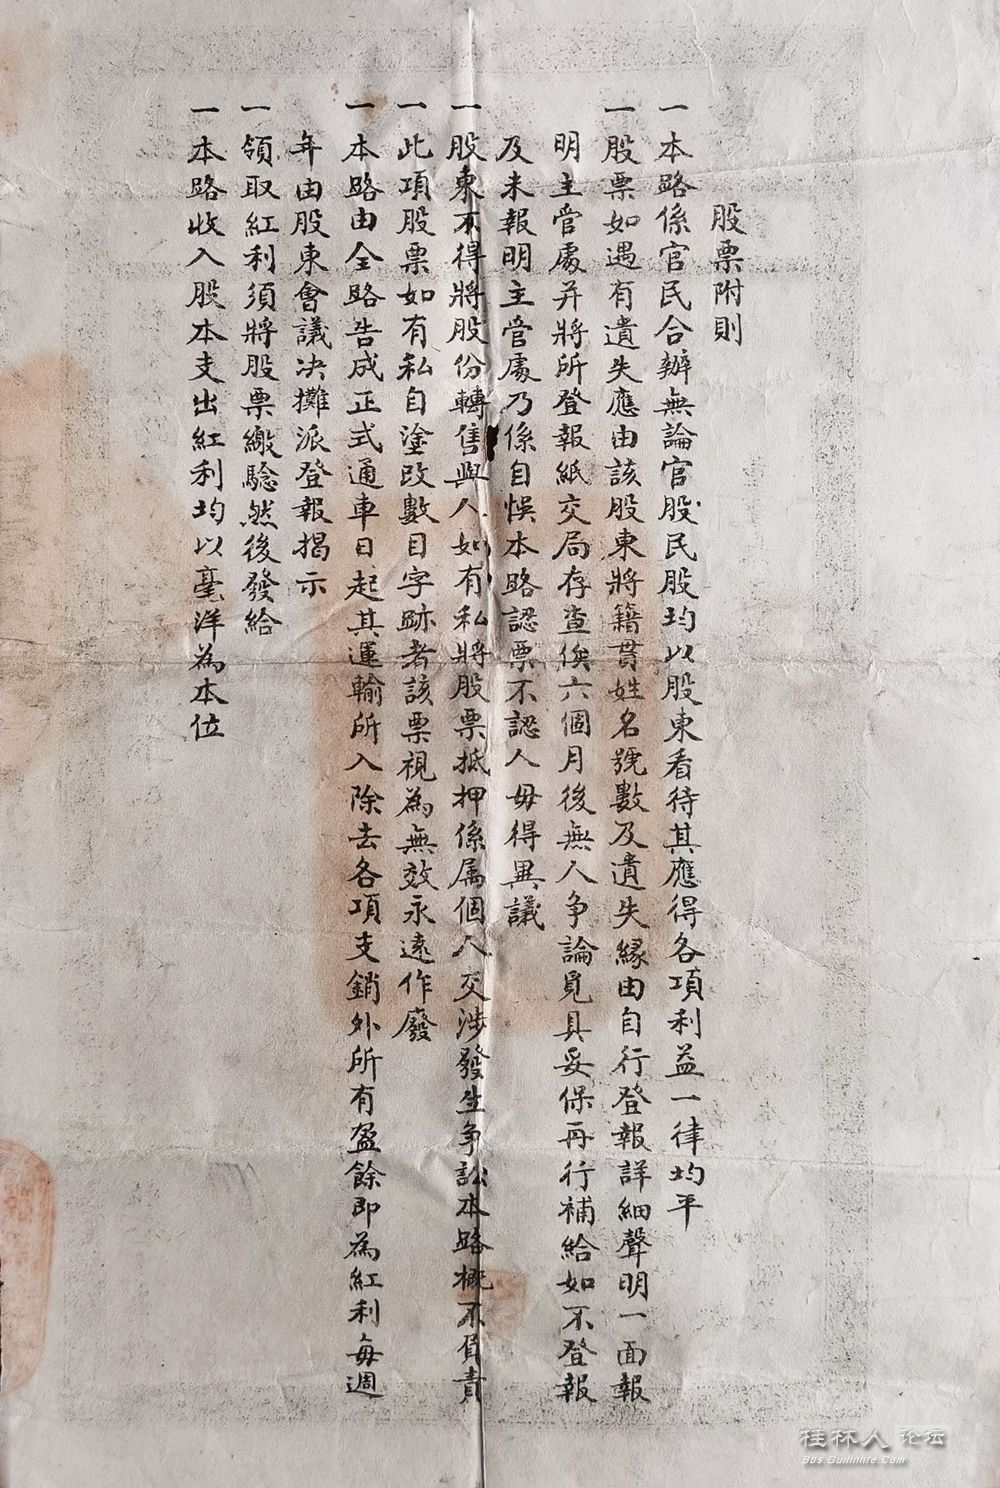 股票附則
一本路係官民合辦無論官股民股均以股東看待其應得各項利益一律均平
一股票如遇有遺失應由該股東將籍貫姓名號數及遺失緣由自行登報詳細聲明一面報
明主管處并將所登報紙交局存查俟六個月後無人争論覓具妥保再行補給如不登報
及未報明主管處乃係自悞本路認票不認人毋得異議
一股東不得將股份轉售與人如有私將股票抵押係属個人交涉發生争訟本路概不負責
一此項股票如有私自塗改數目字跡者該票視為無效永遠作廢
一本路由全路告成正式通車日起其運輸所入除去各項支銷外所有盈餘即為紅利每週
年由股東會議决攤派登報揭示
一領取紅利須將股票繳驗然後發給
一本路收入股本支出紅利均以毫洋為本位
桂林人论坛
Bbs.Guilinlife.Com